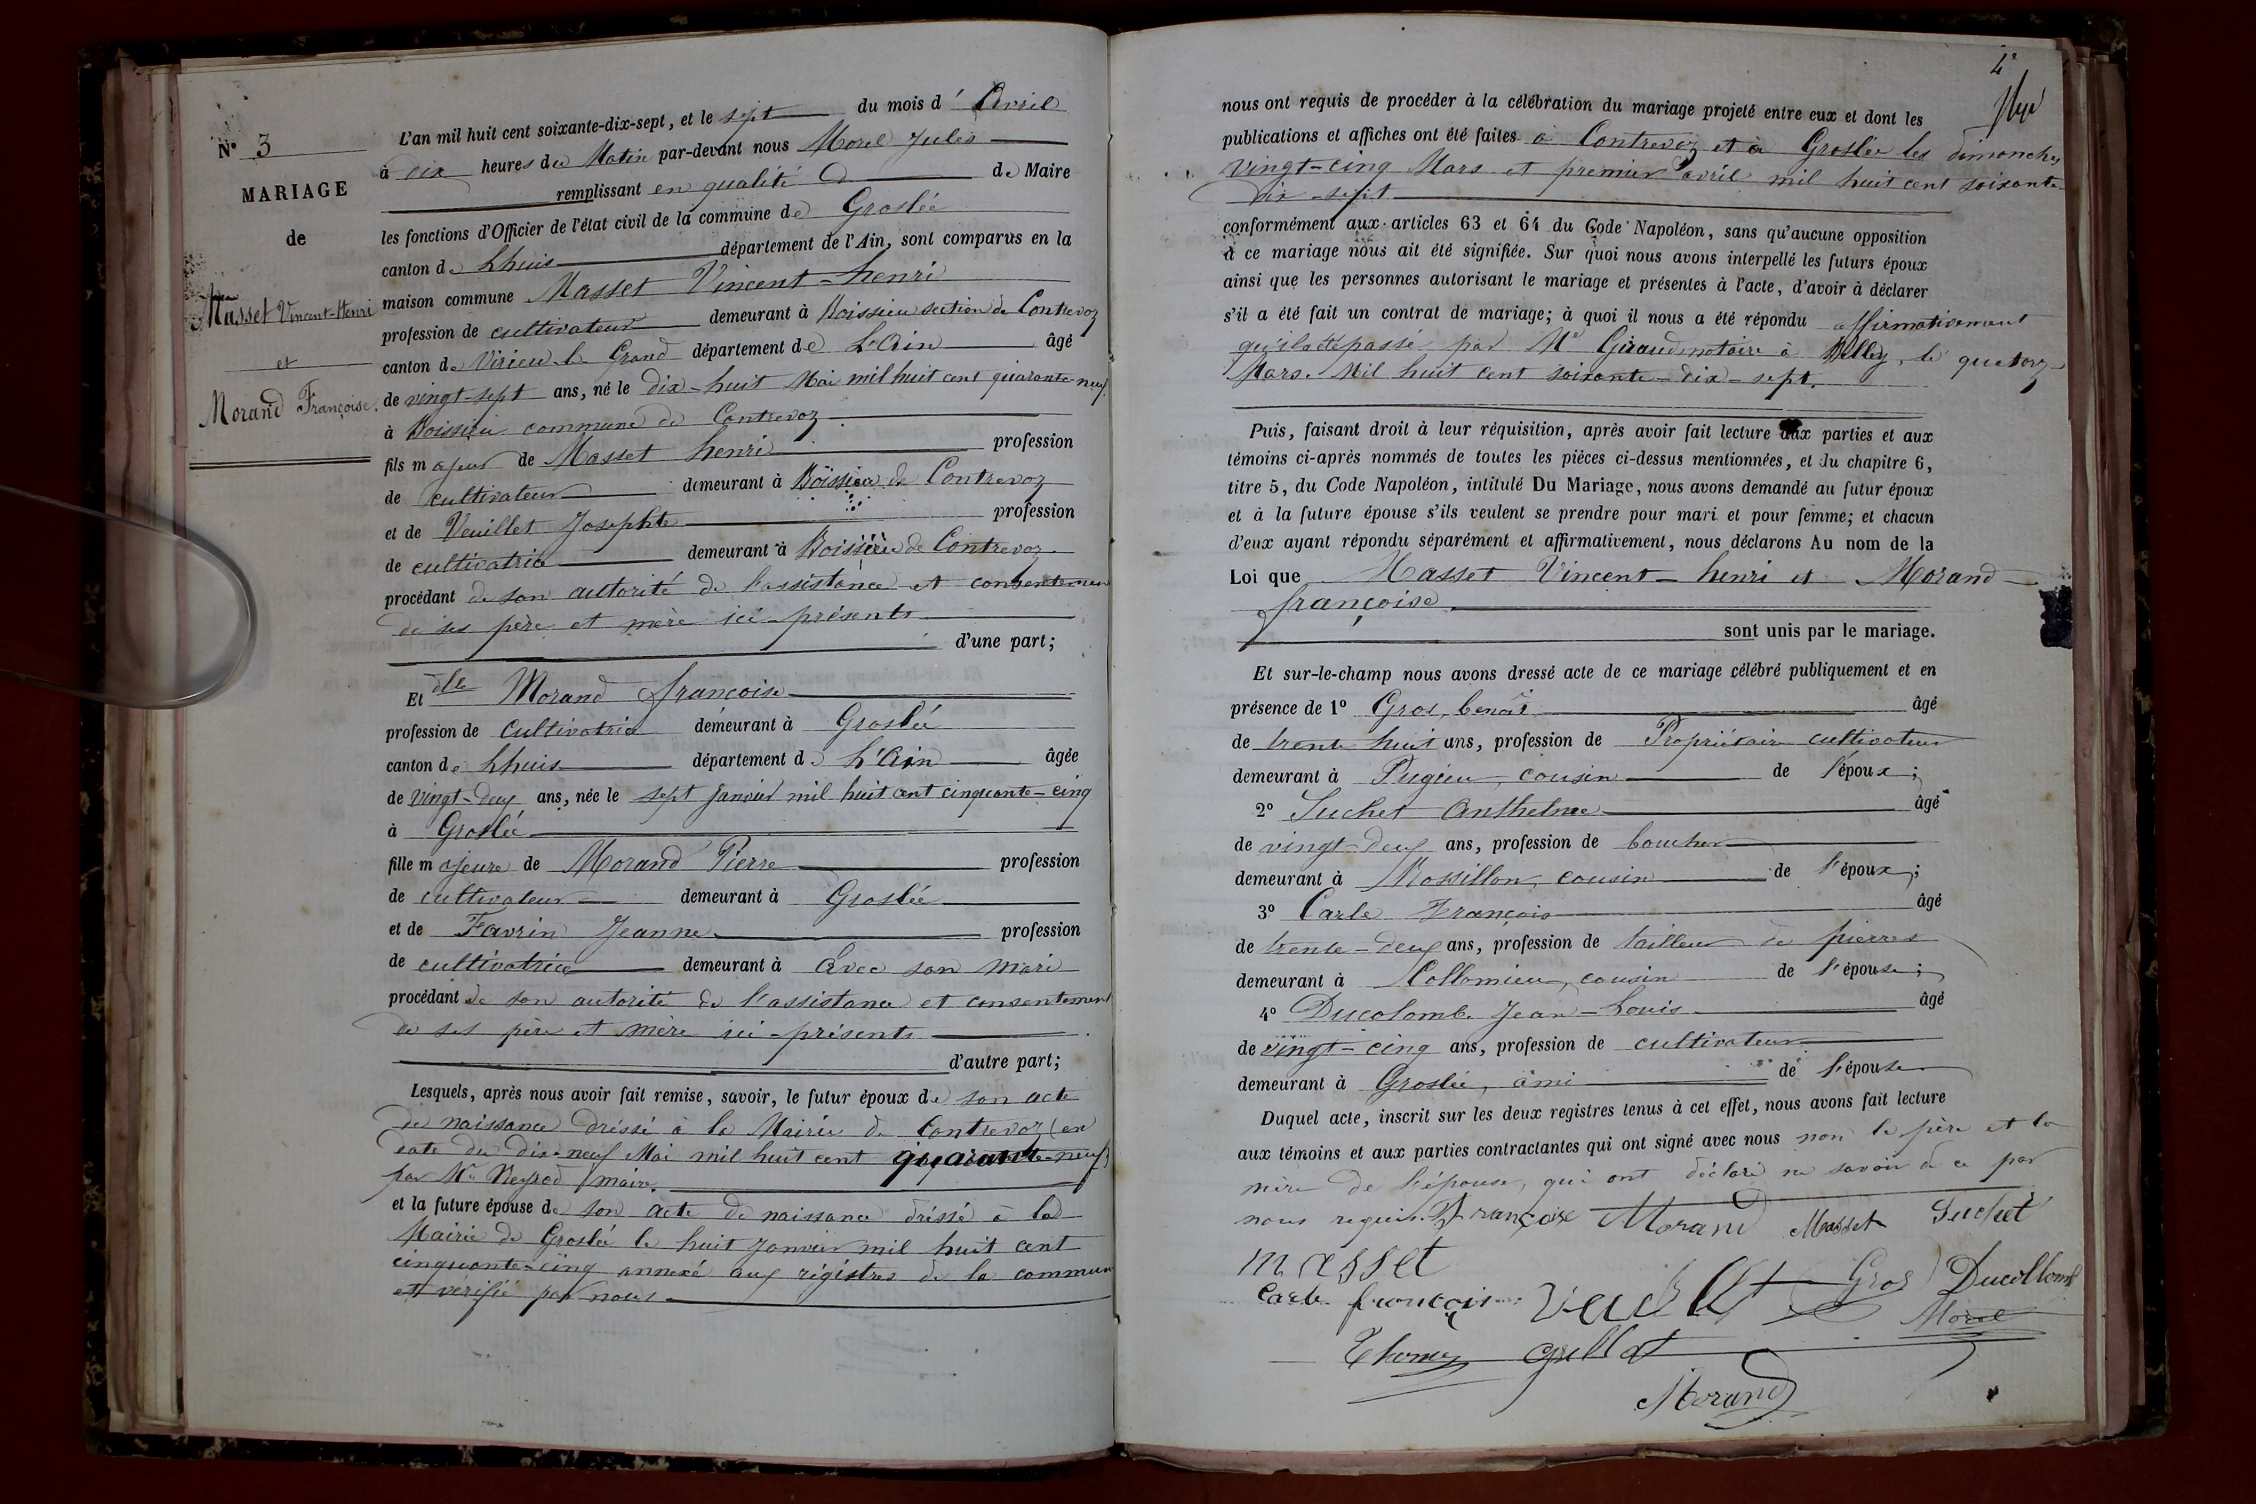 N° 3
MARIAGE
de
Masset Vincent-Henri
et
Morand Françoise.
L'an mil huit cent soixante-dix-sept, et le sept du mois d' Avril
à dix heures du Matin par-devant nous Morel Jules
remplissant en qualité de Maire
les fonctions d'Officier de l'état civil de la commune de Groslée
canton de Lhuis département de l'Ain, sont comparus en la
maison commune Masset Vincent-henri
profession de cultivateur demeurant à Boissieu section de Contrevoz
canton de Virieu-le Grand département de L'Ain âgé
de vingt-sept ans, né le dix-huit Mai mil huit cent quarante neuf
à Boissieu commune de Contrevoz
fils majeur de Masset henri profession
de cultivateur demeurant à Boissieu de Contrevoz
et de Veuillet Josephte profession
de cultivatrice demeurant à Boissieu de Contrevoz
procédant de son autorité de l'assistance et consentement
de ses père et mère ici-présents
d'une part;
Et dlle Morand françoise
profession de cultivatrice demeurant à Groslée
canton de Lhuis département de L'Ain âgée
de vingt-deux ans, née le sept Janvier mil huit cent cinquante-cinq
à Groslée
fille majeure de Morand Pierre profession
de cultivateur demeurant à Groslée
et de Favrin Jeanne profession
de cultivatrice demeurant à Avec son mari
procédant de son autorité de l'assistance et consentement
de ses père et mère ici-présents
d'autre part;
Lesquels, après nous avoir fait remise, savoir, le futur époux de son acte
de naissance dréssé à la Mairie de Contrevoz (en
date du dix-neuf Mai mil huit cent quarante-neuf)
par Mr Neyrod maire.
et la future épouse de son acte de naissance dréssé à la
Mairie de Groslée le huit Janvier mil huit cent
cinquante-cinq annexé aux régistres de la commune
et vérifié par nous
4e
nous ont requis de procéder à la célébration du mariage projeté entre eux et dont les
publications et affiches ont été faites à Contrevoz et à Groslée les dimanches
vingt-cinq Mars et premier avril mil huit cent soixante
dix-sept
conformément aux articles 63 et 64 du Code Napoléon, sans qu'aucune opposition
à ce mariage nous ait été signifiée. Sur quoi nous avons interpellé les futurs époux
ainsi que les personnes autorisant le mariage et présentes à l'acte, d'avoir à déclarer
s'il a été fait un contrat de mariage; à quoi il nous a été répondu affirmativement
qu'il a été passé par Me Giraud notaire à Belley, le quatorze
Mars Mil huit cent soixante-dix-sept.
Puis, faisant droit à leur réquisition, après avoir fait lecture aux parties et aux
témoins ci-après nommés de toutes les pièces ci-dessus mentionnées, et du chapitre 6,
titre 5, du Code Napoléon, intitulé Du Mariage, nous avons demandé au futur époux
et à la future épouse s'ils veulent se prendre pour mari et pour femme; et chacun
d'eux ayant répondu séparément et affirmativement, nous déclarons Au nom de la
Loi que Masset Vincent-henri et Morand
françoise
sont unis par le mariage.
Et sur-le-champ nous avons dressé acte de ce mariage célébré publiquement et en
présence de 1° Gros, benoît âgé
de trente huit ans, profession de Propriétaire cultivateur
demeurant à Pugieu, cousin de l'époux;
2° Suchet Anthelme âgé
de vingt-deux ans, profession de boucher
demeurant à Rossillon, cousin de l'époux;
3° Carle François âgé
de trente-deux ans, profession de tailleur de pierres
demeurant à Collomieu, cousin de l'épouse;
4° Ducolomb Jean-Louis âgé
de vingt-cinq ans, profession de cultivateur
demeurant à Groslée, ami de l'épouse
Duquel acte, inscrit sur les deux registres tenus à cet effet, nous avons fait lecture
aux témoins et aux parties contractantes qui ont signé avec nous non le père et la
mère de l'épouse, qui ont déclaré ne savoir de ce par
nous requis. Françoise Morand Masset Suchet
masset
Carle françois Veuillet Gros Ducollomb
Morel
Thomey Grillat
Morand